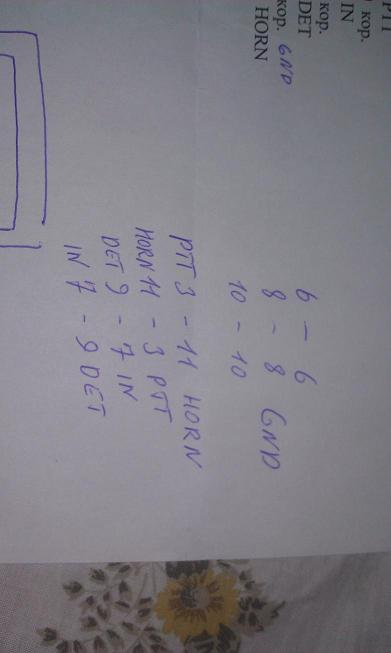 РТТ
) кор.
IN
кор.
DET
кор. GND
HORN
6 - 6
8 - 8 GND
10 - 10
PTT 3 - 11 HORN
HORN 11 - 3 PTT
DET 9 - 7 IN
IN 7 - 9 DET